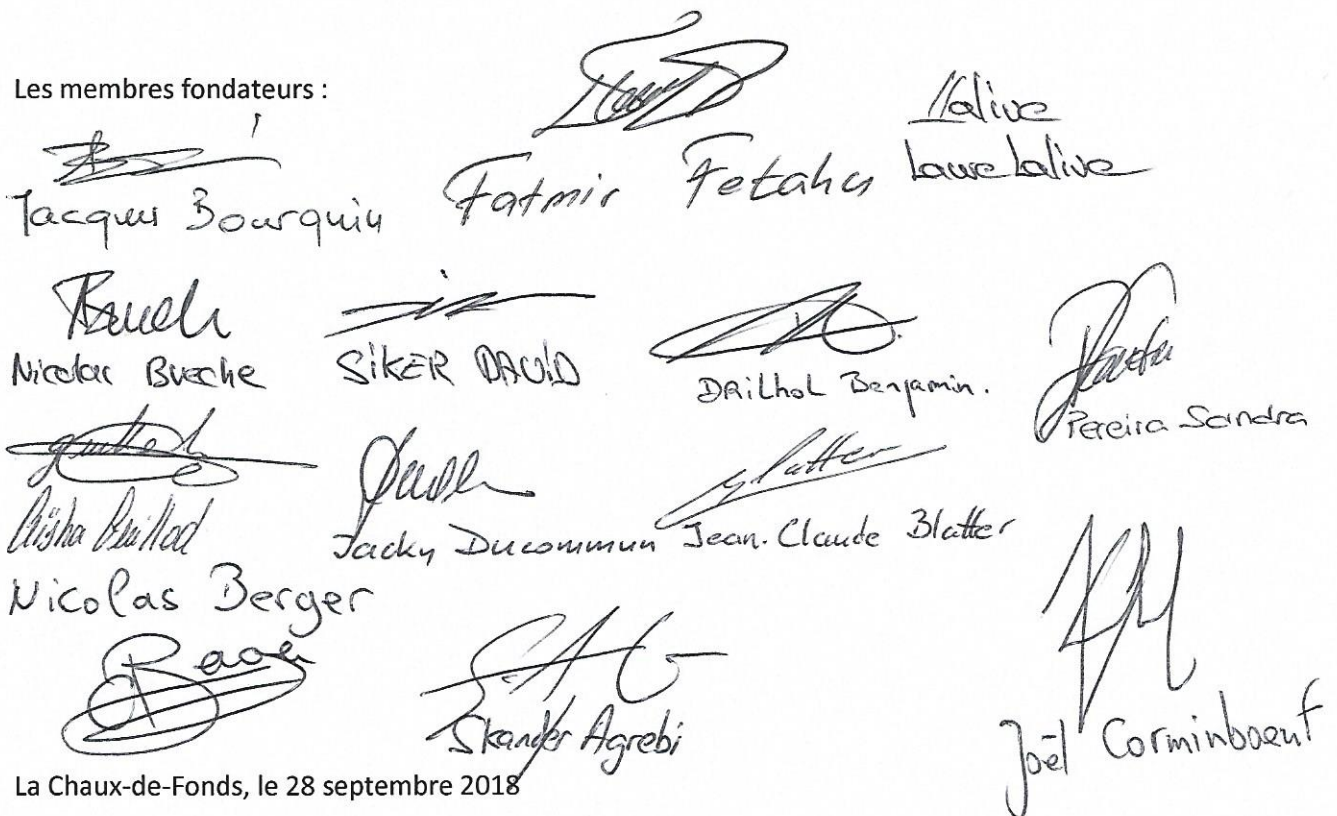 Les membres fondateurs :
Lalive
Jacques Bourquin
Fatmir Fetahu
Laure Lalive
Nicolas Bueche
SiKER DAViD
DRiLhoL Benjamin.
Pereira Sandra
Aïsha Beuillod
Jacky Ducommun
Blatter
Jean-Claude Blatter
Nicolas Berger
Skander Agrebi
Joël Corminboeuf
La Chaux-de-Fonds, le 28 septembre 2018